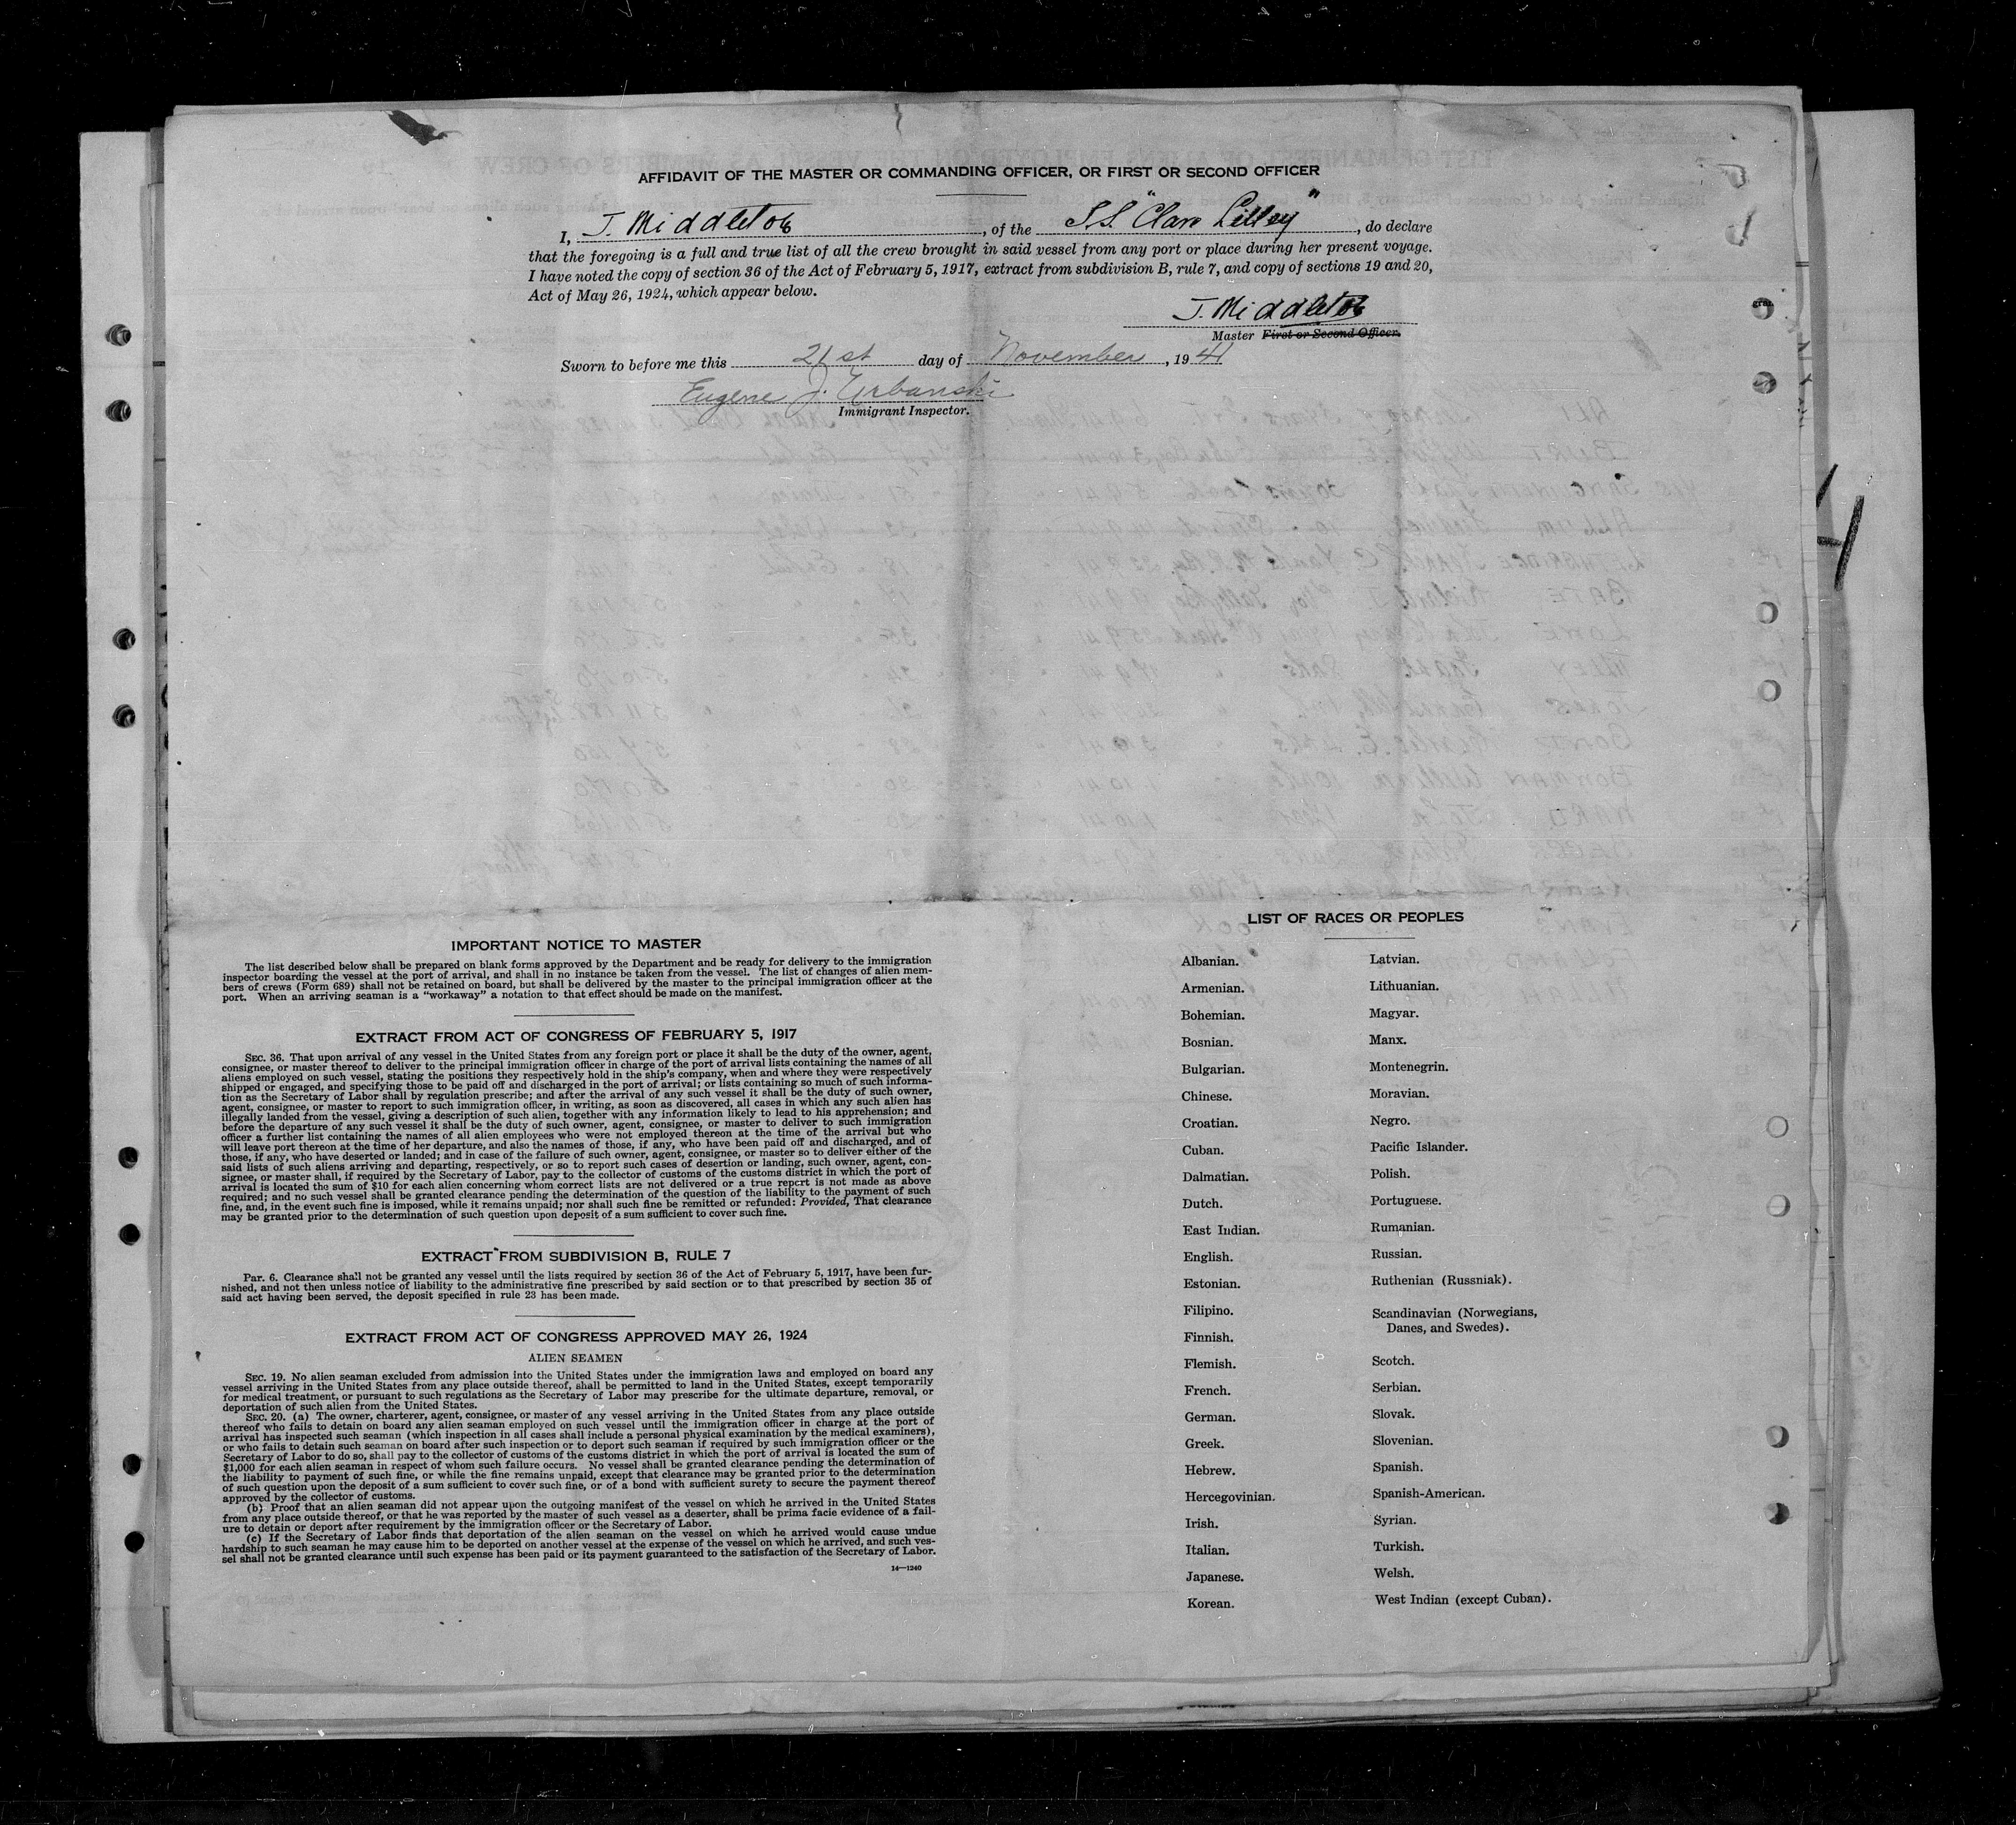 AFFIDAVIT OF THE MASTER OR COMMANDING OFFICER, OR FIRST OR SECOND OFFICER
I, J. Middleton, of the S.S. "Clare Lilley", do declare
that the foregoing is a full and true list of all the crew brought in said vessel from any port or place during her present voyage.
I have noted the copy of section 36 of the Act of February 5, 1917, extract from subdivision B, rule 7, and copy of sections 19 and 20,
Act of May 26, 1924, which appear below.
J. Middleton
Master First or Second Officer.
Sworn to before me this 21st day of November, 1941
Eugene J. Urbanski
Immigrant Inspector.
IMPORTANT NOTICE TO MASTER
The list described below shall be prepared on blank forms approved by the Department and be ready for delivery to the immigration
inspector boarding the vessel at the port of arrival, and shall in no instance be taken from the vessel. The list of changes of alien mem-
bers of crews (Form 689) shall not be retained on board, but shall be delivered by the master to the principal immigration officer at the
port. When an arriving seaman is a "workaway" a notation to that effect should be made on the manifest.
EXTRACT FROM ACT OF CONGRESS OF FEBRUARY 5, 1917
SEC. 36. That upon arrival of any vessel in the United States from any foreign port or place it shall be the duty of the owner, agent,
consignee, or master thereof to deliver to the principal immigration officer in charge of the port of arrival lists containing the names of all
aliens employed on such vessel, stating the positions they respectively hold in the ship's company, when and where they were respectively
shipped or engaged, and specifying those to be paid off and discharged in the port of arrival; or lists containing so much of such informa-
tion as the Secretary of Labor shall by regulation prescribe; and after the arrival of any such vessel it shall be the duty of such owner,
agent, consignee, or master to report to such immigration officer, in writing, as soon as discovered, all cases in which any such alien has
illegally landed from the vessel, giving a description of such alien, together with any information likely to lead to his apprehension; and
before the departure of any such vessel it shall be the duty of such owner, agent, consignee, or master to deliver to such immigration
officer a further list containing the names of all alien employees who were not employed thereon at the time of the arrival but who
will leave port thereon at the time of her departure, and also the names of those, if any, who have been paid off and discharged, and of
those, if any, who have deserted or landed; and in case of the failure of such owner, agent, consignee, or master so to deliver either of the
said lists of such aliens arriving and departing, respectively, or so to report such cases of desertion or landing, such owner, agent, con-
signee, or master shall, if required by the Secretary of Labor, pay to the collector of customs of the customs district in which the port of
arrival is located the sum of $10 for each alien concerning whom correct lists are not delivered or a true report is not made as above
required; and no such vessel shall be granted clearance pending the determination of the question of the liability to the payment of such
fine, and, in the event such fine is imposed, while it remains unpaid; nor shall such fine be remitted or refunded: Provided, That clearance
may be granted prior to the determination of such question upon deposit of a sum sufficient to cover such fine.
EXTRACT FROM SUBDIVISION B, RULE 7
Par. 6. Clearance shall not be granted any vessel until the lists required by section 36 of the Act of February 5, 1917, have been fur-
nished, and not then unless notice of liability to the administrative fine prescribed by said section or to that prescribed by section 35 of
said act having been served, the deposit specified in rule 23 has been made.
EXTRACT FROM ACT OF CONGRESS APPROVED MAY 26, 1924
ALIEN SEAMEN
SEC. 19. No alien seaman excluded from admission into the United States under the immigration laws and employed on board any
vessel arriving in the United States from any place outside thereof, shall be permitted to land in the United States, except temporarily
for medical treatment, or pursuant to such regulations as the Secretary of Labor may prescribe for the ultimate departure, removal, or
deportation of such alien from the United States.
SEC. 20. (a) The owner, charterer, agent, consignee, or master of any vessel arriving in the United States from any place outside
thereof who fails to detain on board any alien seaman employed on such vessel until the immigration officer in charge at the port of
arrival has inspected such seaman (which inspection in all cases shall include a personal physical examination by the medical examiners),
or who fails to detain such seaman on board after such inspection or to deport such seaman if required by such immigration officer or the
Secretary of Labor to do so, shall pay to the collector of customs of the customs district in which the port of arrival is located the sum of
$1,000 for each alien seaman in respect of whom such failure occurs. No vessel shall be granted clearance pending the determination of
the liability to payment of such fine, or while the fine remains unpaid, except that clearance may be granted prior to the determination
of such question upon the deposit of a sum sufficient to cover such fine, or of a bond with sufficient surety to secure the payment thereof
approved by the collector of customs.
(b) Proof that an alien seaman did not appear upon the outgoing manifest of the vessel on which he arrived in the United States
from any place outside thereof, or that he was reported by the master of such vessel as a deserter, shall be prima facie evidence of a fail-
ure to detain or deport after requirement by the immigration officer or the Secretary of Labor.
(c) If the Secretary of Labor finds that deportation of the alien seaman on the vessel on which he arrived would cause undue
hardship to such seaman he may cause him to be deported on another vessel at the expense of the vessel on which he arrived, and such ves-
sel shall not be granted clearance until such expense has been paid or its payment guaranteed to the satisfaction of the Secretary of Labor.
14—1240
LIST OF RACES OR PEOPLES
Albanian.
Armenian.
Bohemian.
Bosnian.
Bulgarian.
Chinese.
Croatian.
Cuban.
Dalmatian.
Dutch.
East Indian.
English.
Estonian.
Filipino.
Finnish.
Flemish.
French.
German.
Greek.
Hebrew.
Hercegovinian.
Irish.
Italian.
Japanese.
Korean.
Latvian.
Lithuanian.
Magyar.
Manx.
Montenegrin.
Moravian.
Negro.
Pacific Islander.
Polish.
Portuguese.
Rumanian.
Russian.
Ruthenian (Russniak).
Scandinavian (Norwegians,
Danes, and Swedes).
Scotch.
Serbian.
Slovak.
Slovenian.
Spanish.
Spanish-American.
Syrian.
Turkish.
Welsh.
West Indian (except Cuban).